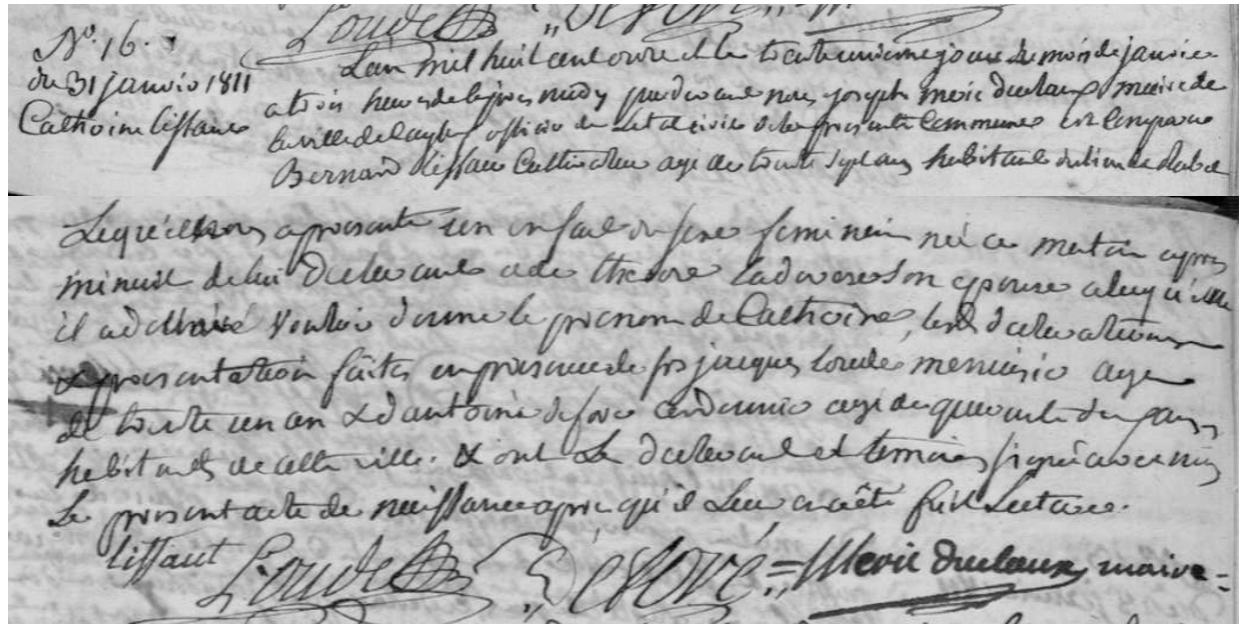 Loudes Deforé
N.° 16.
du 31 janvier 1811
Catherine lissaut
L'an mil huit cent onze et le trente unieme jour du mois de janvier
a trois heures de lapres midy pardevant nous joseph meric duclaux maire de
la ville de officier de letat civil de la presente Commune est Comparu
Bernard lissaut Cultivateur age de trente sept ans habitant du lieu de
Lequel nous a presenté un enfant du sexe feminin née ce matin apres
minuit de lui declarant et de therese Ladevese son epouse a laquelle
il a déclaré vouloir donner le prenom de Catherine, lesd declarations
& presentation faites en presence de fs jacques Loudes menuisier age
de trente un an & d'antoine deforé cordonnier age de quarante deux ans
habitants de cette ville. & ont Le declarant et temoins signé avec nous
Le present acte de naissance apres qu'il Leur en a êté fait Lecture.
lissaut Loudes Deforé = Meric duclaux maire =